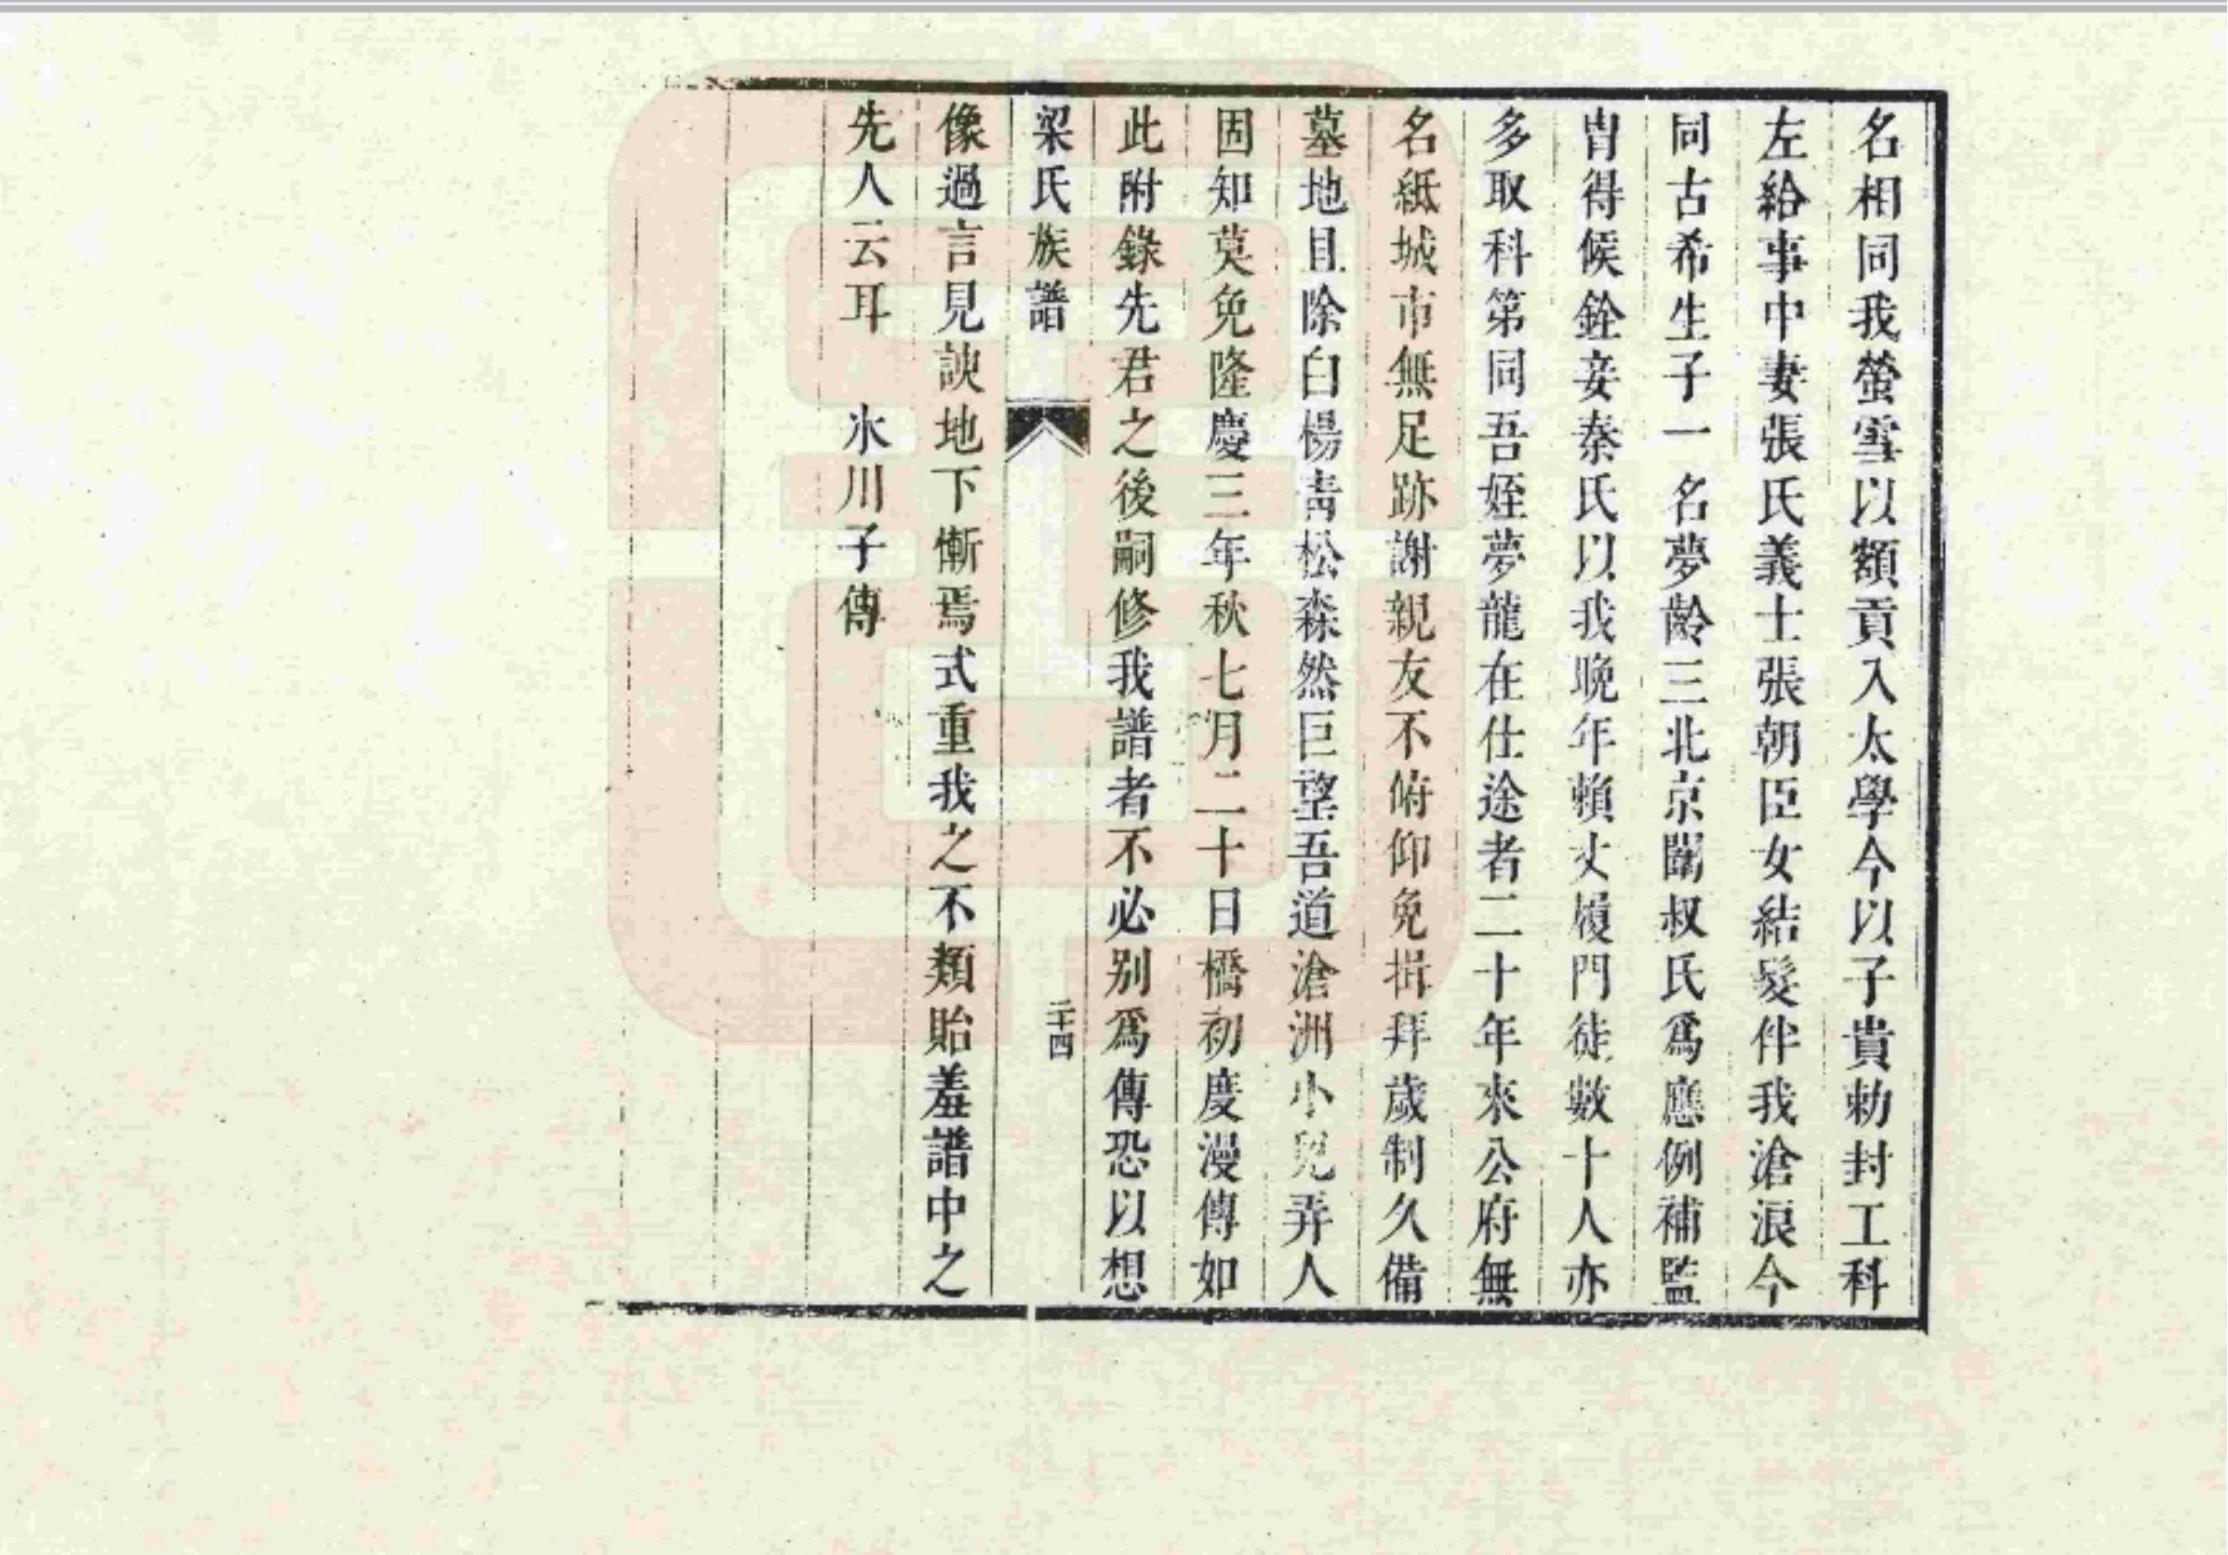 名相同我螢雪以額貢入太學今以子貴勅封工科
左給事中妻張氏義士張朝臣女結髮伴我滄浪今
同古希生子一名夢齡三北京闈叔氏爲應例補監
胄得候銓妾秦氏以我晚年賴丈履門徒數十人亦
多取科第同吾姪夢龍在仕途者二十年來公府無
名紙城市無足跡謝親友不俯仰免揖拜歲制久備
墓地且除白楊青松森然巨望吾道滄洲小兒弄人
固知莫免隆慶三年秋七月二十日橋初度漫傳如
此附錄先君之後嗣修我譜者不必别爲傳恐以想
梁氏族譜
二十四
像過言見諛地下慚焉式重我之不類貽羞譜中之
先人云耳 氷川子傳